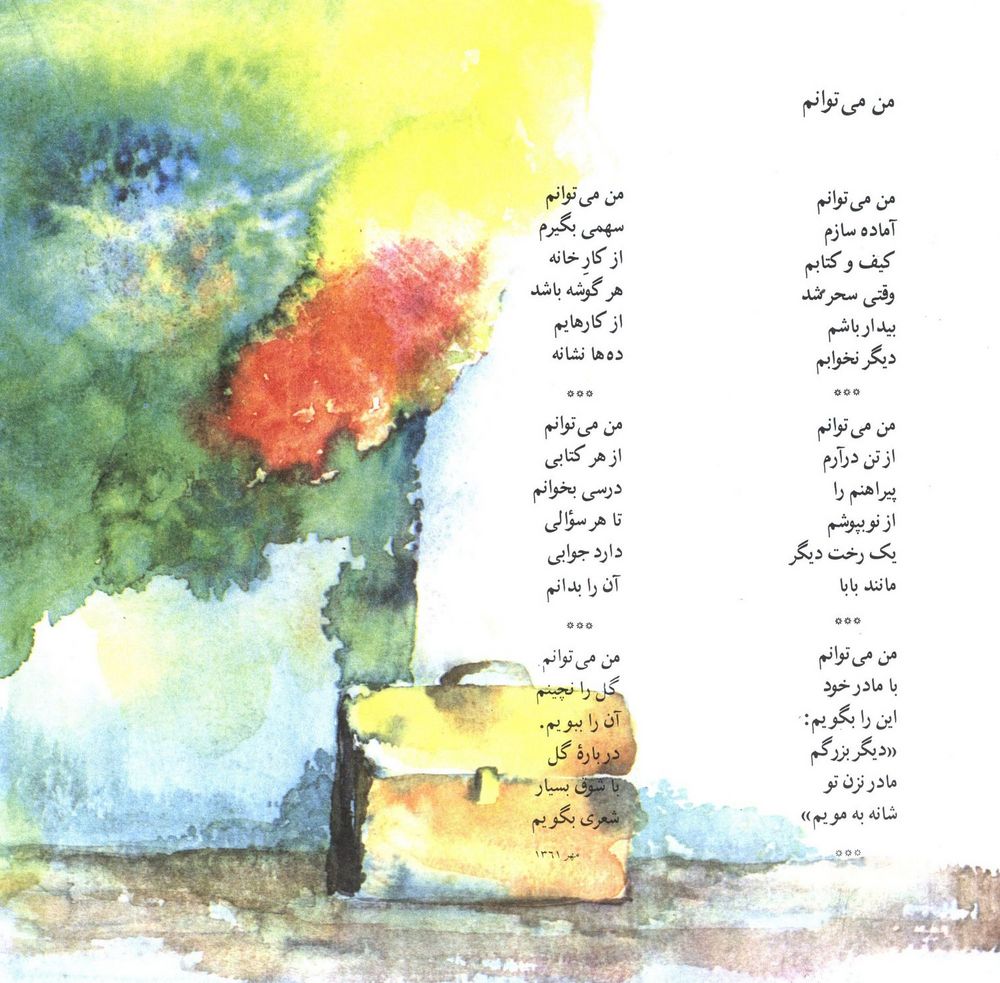 من می‌توانم
من می‌توانم
آماده سازم
کیف و کتابم
وقتی سحر شد
بیدار باشم
دیگر نخوابم
***
من می‌توانم
از تن درآرم
پیراهنم را
از نو بپوشم
یک رخت دیگر
مانند بابا
***
من می‌توانم
با مادر خود
این را بگویم:
«دیگر بزرگم
مادر نزن تو
شانه به مویم»
***
من می‌توانم
سهمی بگیرم
از کارِ خانه
هر گوشه باشد
از کارهایم
ده‌ها نشانه
***
من می‌توانم
از هر کتابی
درسی بخوانم
تا هر سؤالی
دارد جوابی
آن را بدانم
***
من می‌توانم
گل را نچینم
آن را ببویم.
دربارهٔ گل
با شوق بسیار
شعری بگویم
مهر ۱۳۶۱